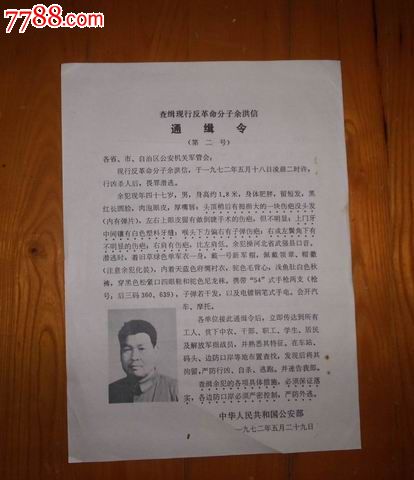 7788.com
查缉现行反革命分子余洪信
通缉令
(第二号)
各省、市、自治区公安机关军管会：
现行反革命分子余洪信，于一九七二年五月十八日凌晨二时许，
行凶杀人后，畏罪潜逃。
余犯现年四十七岁，男，身高约1.8米，身体肥胖，留短发，黑
红长圆脸，肉泡眼皮，厚嘴唇；头顶稍后有拇指大的一块伤疤没头发
(内有弹片)，左右上眼皮留有做倒睫手术的伤疤，但不明显；上门牙
中间镶有白色塑料牙缝；喉头下方偏右有子弹伤疤；右或左鬓角下有
不明显的伤疤；右肩有伤疤，比左肩低。余犯操河北省武强县口音。
潜逃时，着旧草绿色单军衣一身，戴一号新军帽，佩戴领章、帽徽
(注意余犯化装)，内着天蓝色府绸衬衣，驼色毛背心，浅鱼肚白色秋
裤，穿黑色松紧口四眼鞋和驼色尼龙袜。携带“54”式手枪两支(枪
号：后三码360、639)，子弹若干发，以及电镀钢笔式手电。会开汽
车、摩托。
各单位接此通缉令后，立即传达到所有工
人、贫下中农、干部、职工、学生、居民
及解放军指战员，并熟悉其特征。在车站、
码头、边防口岸等地布置查找，发现后将其
拘留，严防行凶、自杀、逃跑。并速告我部。
查缉余犯的各项具体措施，必须保证落
实，各边防口岸必须严密控制，严防外逃。
中华人民共和国公安部
一九七二年五月二十九日